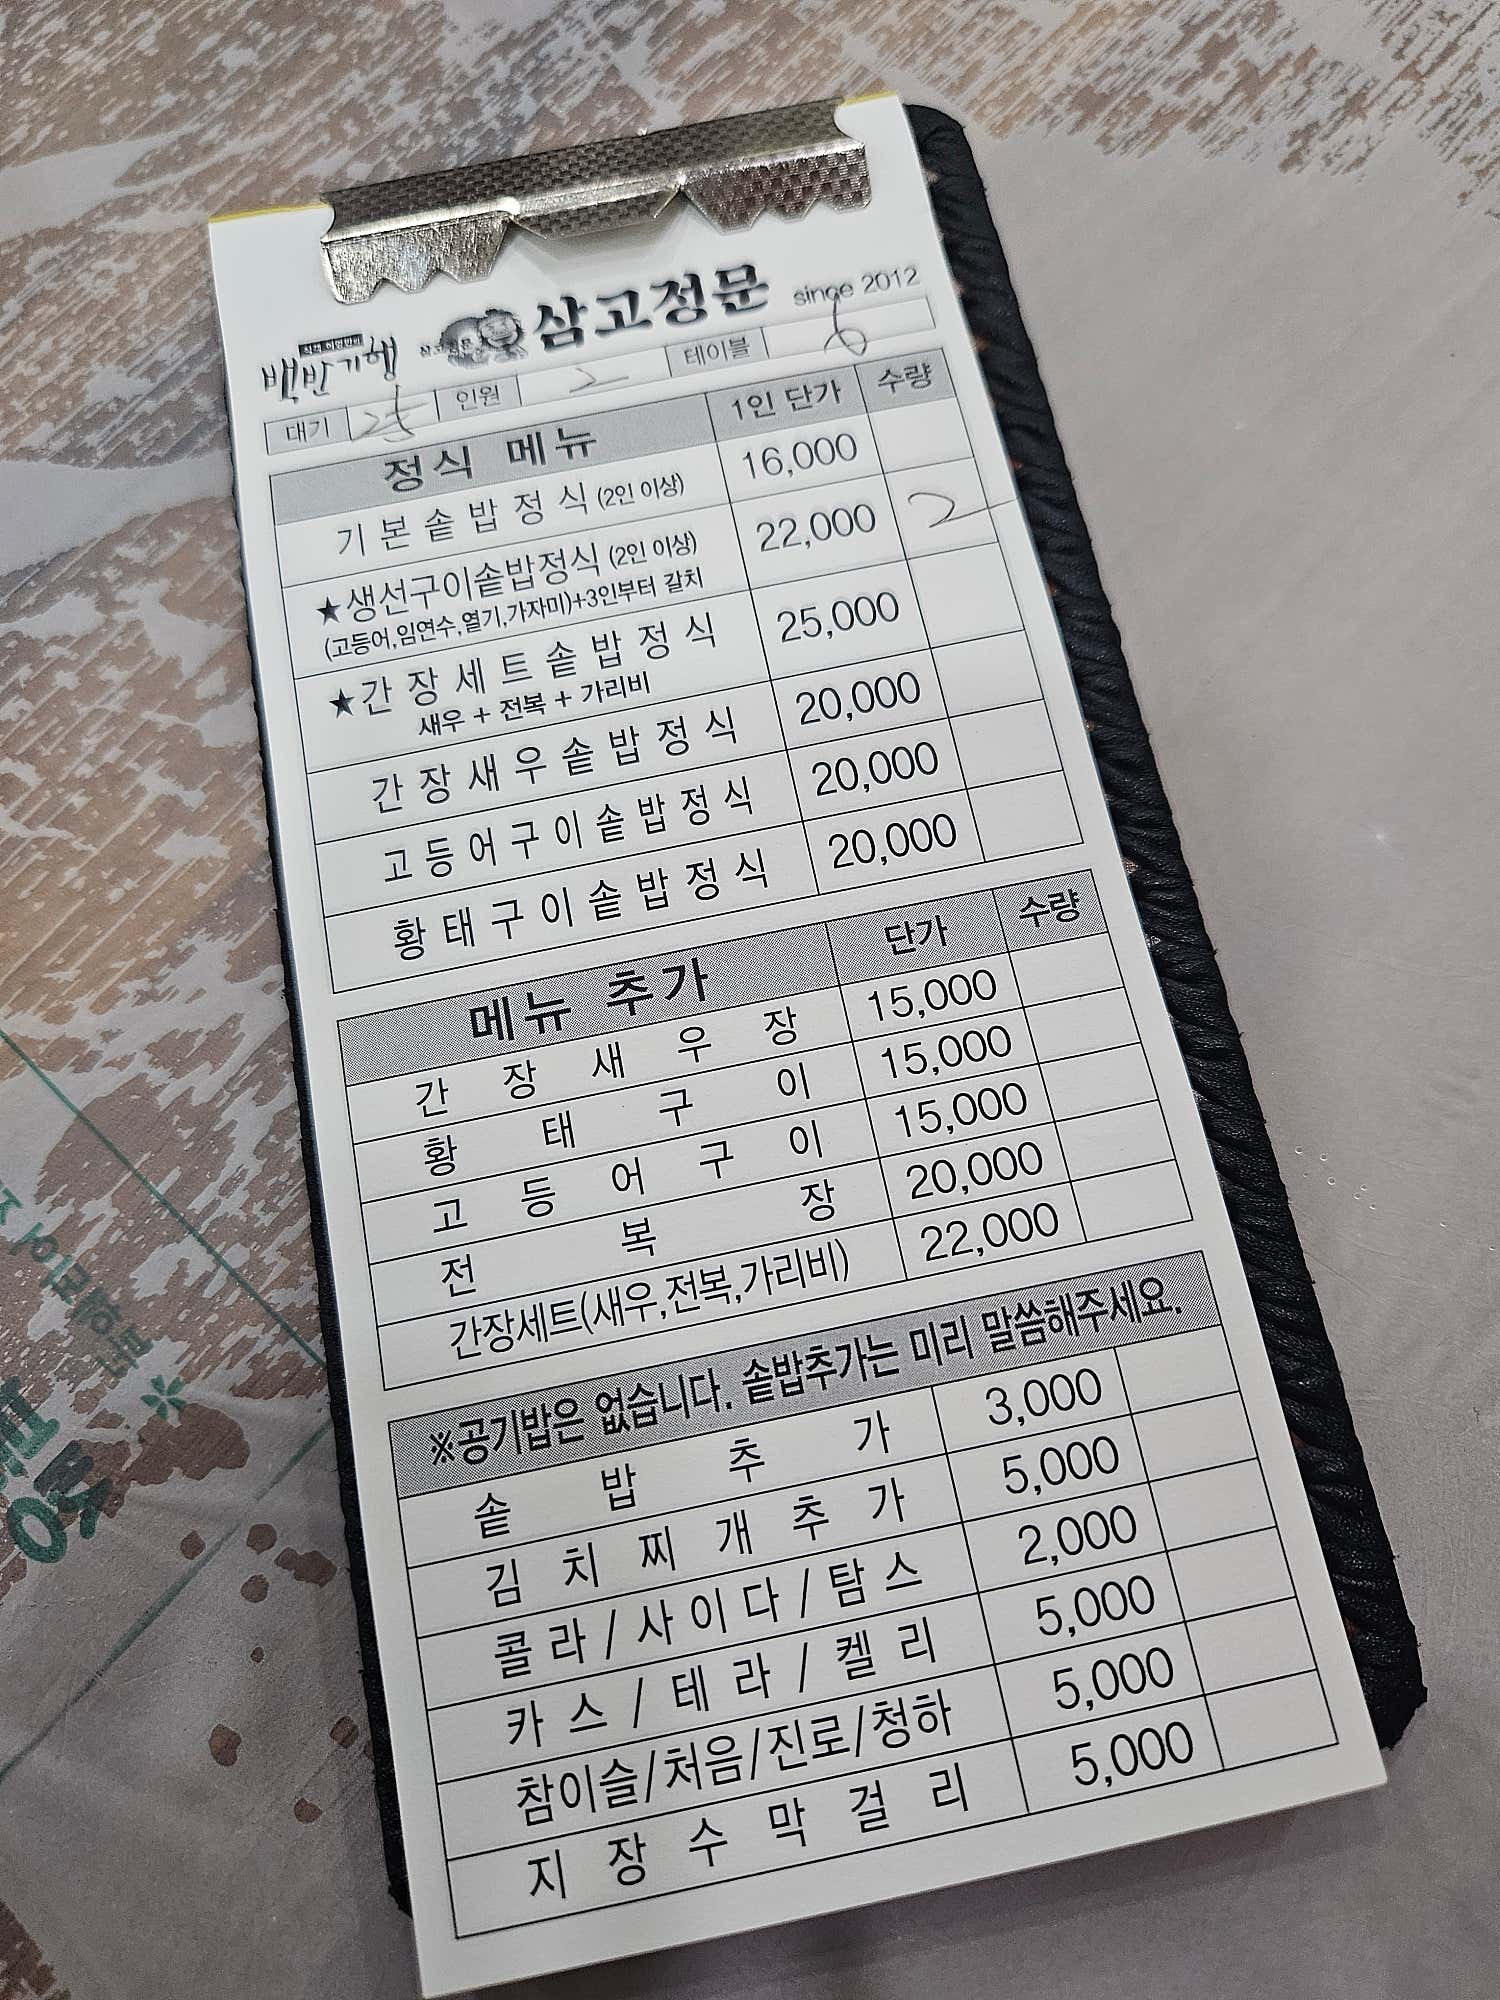 백반기행 삼고정문 since 2012
대기 25 인원 2 테이블 6
정식 메뉴 1인 단가 수량
기본솥밥정식 (2인 이상) 16,000
★생선구이솥밥정식 (2인 이상) 22,000 2
(고등어,임연수,열기,가자미)+3인부터 갈치
★간장세트솥밥정식 25,000
새우 + 전복 + 가리비
간장새우솥밥정식 20,000
고등어구이솥밥정식 20,000
황태구이솥밥정식 20,000
메뉴 추가 단가 수량
간장새우장 15,000
황태구이 15,000
고등어구이 15,000
전복장 20,000
간장세트(새우,전복,가리비) 22,000
※공기밥은 없습니다. 솥밥추가는 미리 말씀해주세요.
솥밥추가 3,000
김치찌개추가 5,000
콜라/사이다/탐스 2,000
카스/테라/켈리 5,000
참이슬/처음/진로/청하 5,000
지장수막걸리 5,000